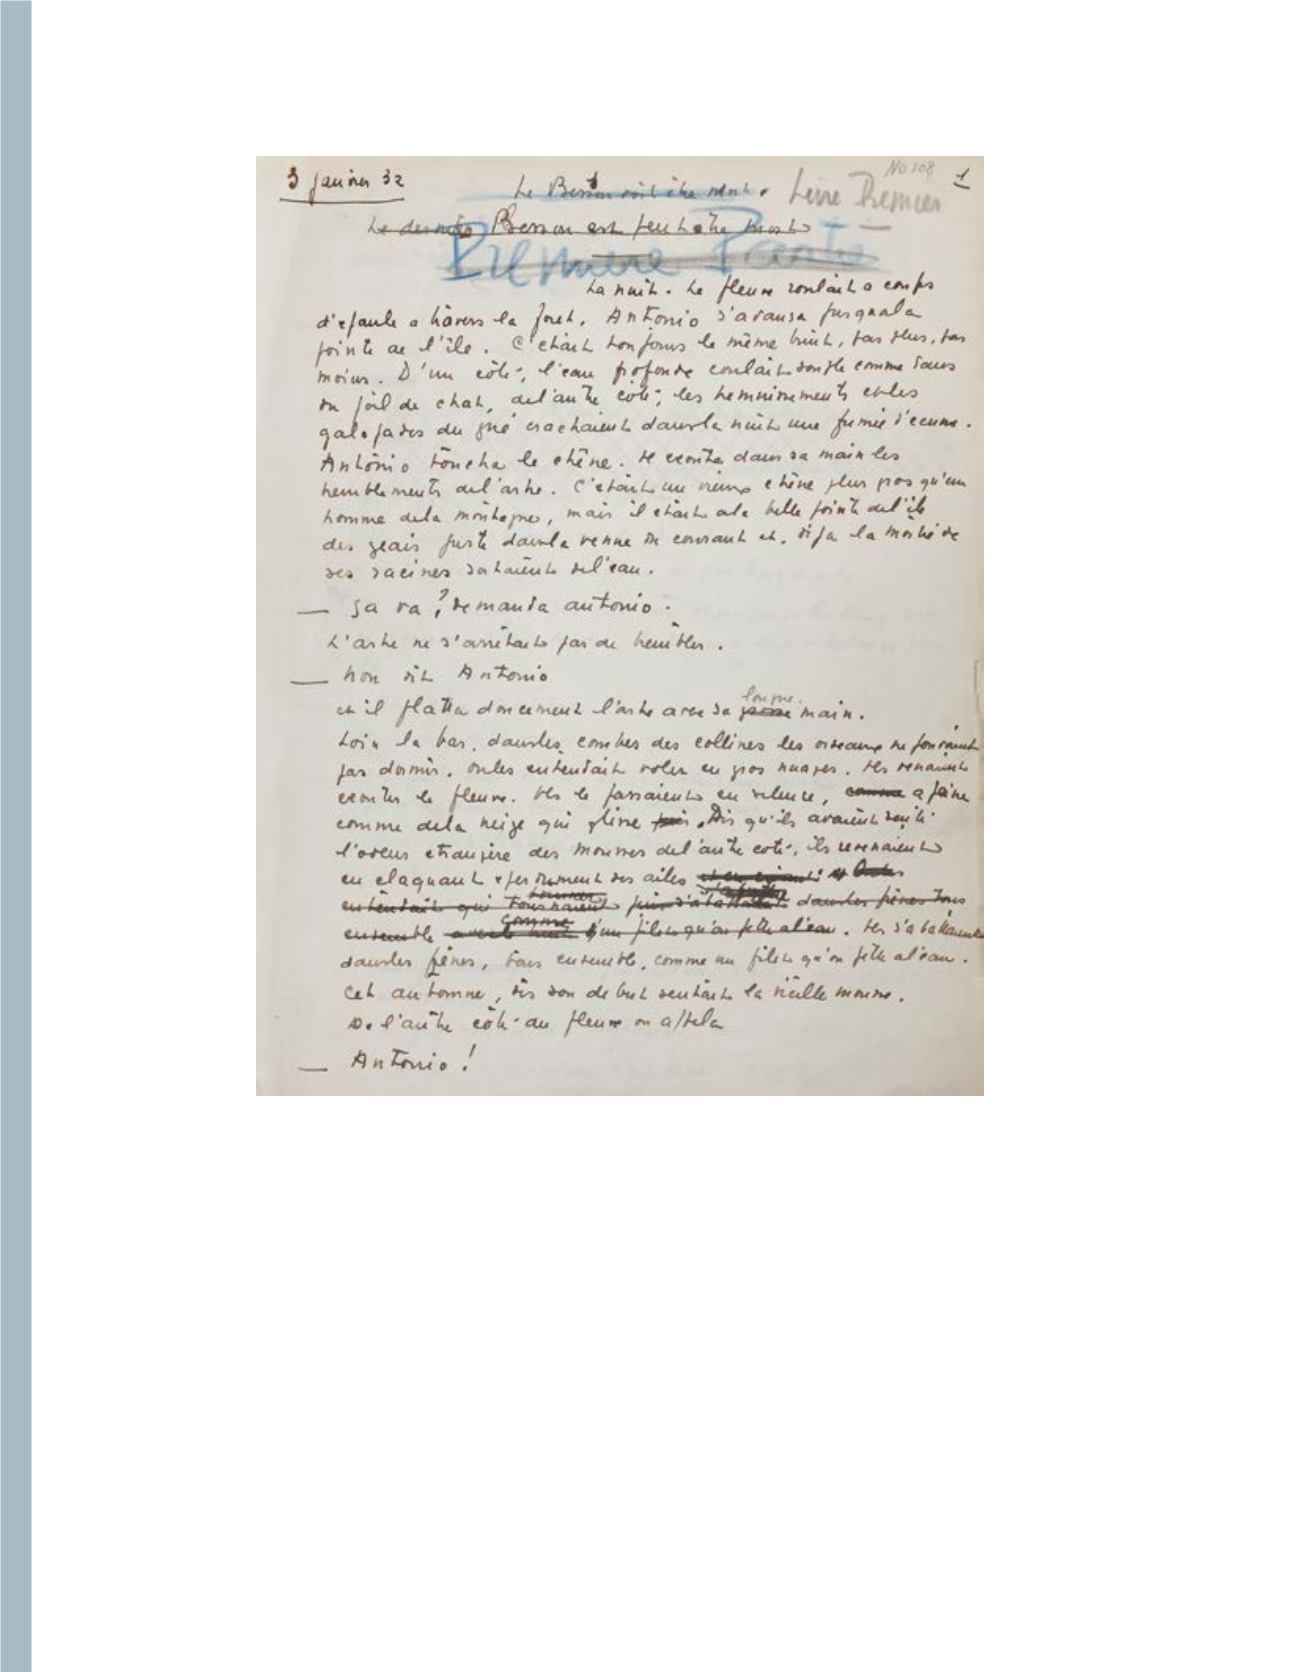 3 janvier 32
No 108
1
Le Besson doit être mort.
Livre Premier
Le dernier Besson est peut etre mort
Premiere Partie
La nuit. Le fleuve roulait a coups
d'epaule a travers la foret. Antonio s'avança jusqu'a la
pointe de l'île. C'etait toujours le même bruit, pas plus, pas
moins. D'un côté, l'eau profonde coulait souple comme dans
du poil de chat, de l'autre côté, les hennissements et les
galopades du gué crachaient dans la nuit une fumée d'ecume.
Antonio toucha le chêne. Il ecouta dans sa main les
tremblements de l'arbre. C'etait un vieux chêne plus gros qu'un
homme de la montagne, mais il etait a la belle pointe de l'ile
des geais juste dans la venue du courant et, deja la moitié de
ses racines sortaient de l'eau.
— ça va? demanda antonio.
L'arbre ne s'arrêtait pas de trembler.
— non dit Antonio
et il flatta doucement l'arbre avec sa longue main.
Loin la bas, dans les combes des collines les oiseaux ne pouvaient
pas dormir. on les entendait voler en gros nuages. Ils venaient
ecouter le fleuve. Ils le passaient en silence, comme a peine
comme de la neige qui glisse puis. Dès qu'ils avaient senti
l'odeur etrangère des mousses de l'autre coté, ils revenaient
en claquant eperdument des ailes
entendait qui tournaient puis s'abattaient dans les frênes tous
ensemble comme d'un filet qu'on jette a l'eau. Ils s'abattaient
dans les frênes, tous ensemble, comme un filet qu'on jette a l'eau.
Cet automne, dès son debut sentait la vieille mousse.
De l'autre côté du fleuve on appela
— Antonio!